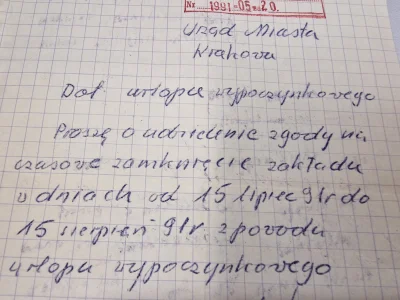 Nr. 1991-05-20.
Urząd Miasta
Krakowa
Dot urlopu wypoczynkowego
Proszę o udzielenie zgody na
czasowe zamknięcie zakładu
w dniach od 15 lipiec 91r do
15 sierpień 91r z powodu
urlopu wypoczynkowego